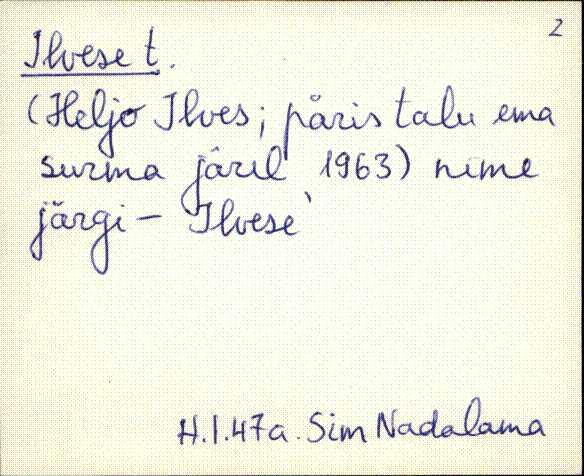 2
Ilvese t.
(Heljo Ilves; päris talu ema
surma järel 1963) nime
järgi – Ilvese`
H.I.47a. Sim Nadalama